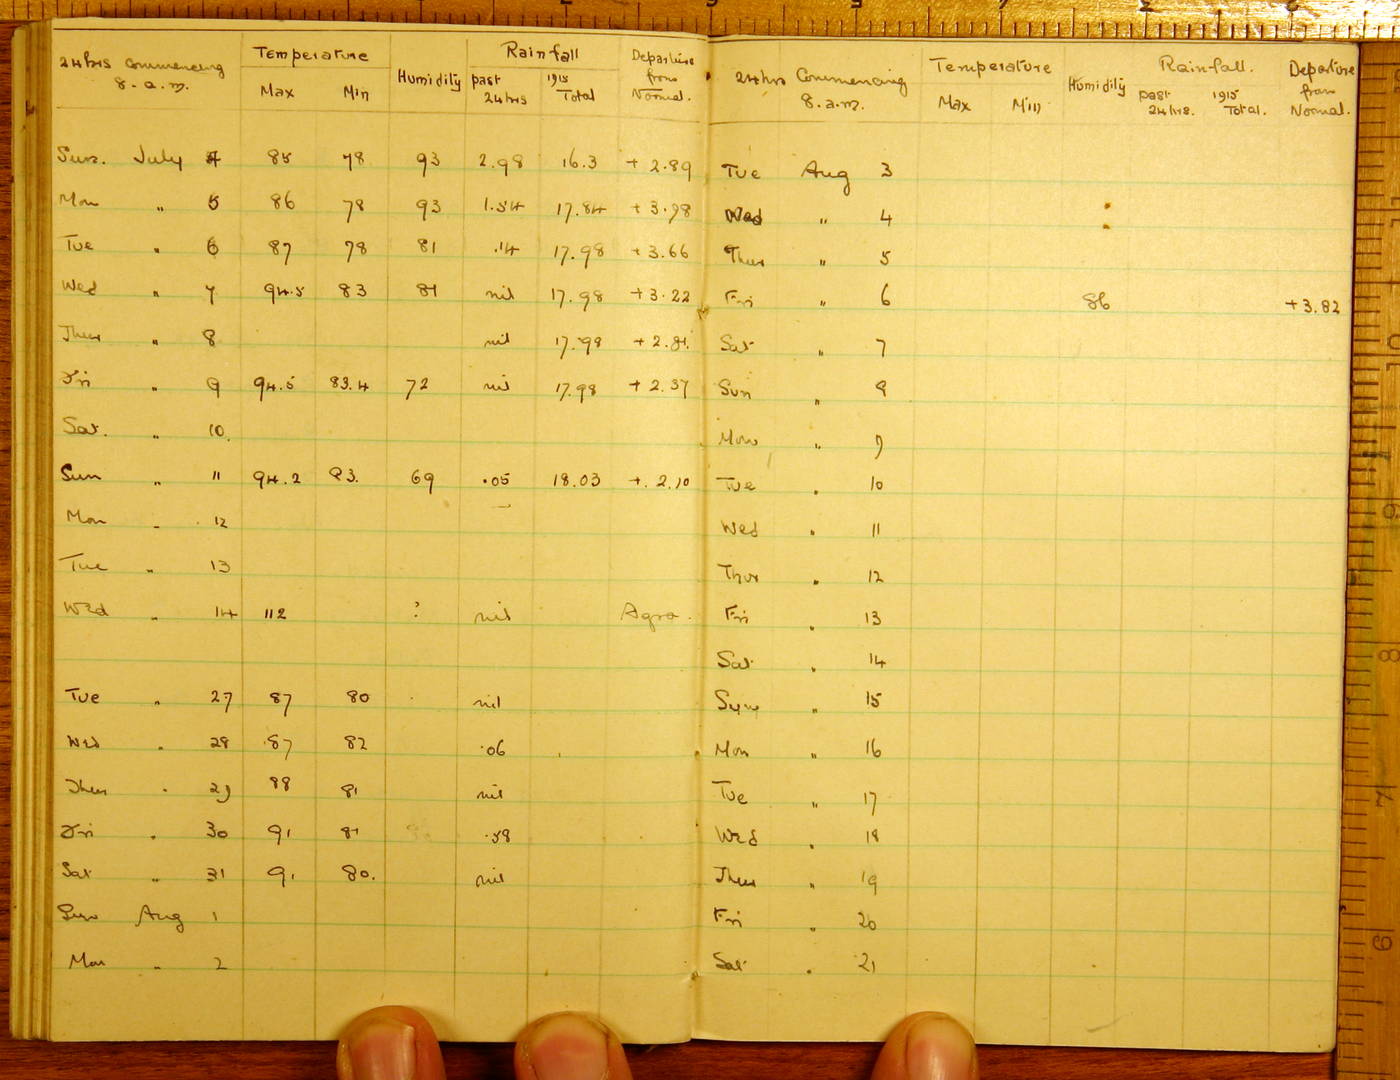 24 hrs Commencing 8. a.m. Temperature Max Min Humidity Rainfall past 24 hrs 1915 Total Departure from Normal.
Sun. July 4 85 78 93 2.98 16.3 + 2.89
Mon " 5 86 78 93 1.54 17.84 + 3.98
Tue " 6 87 78 81 .14 17.98 + 3.66
Wed " 7 94.5 83 81 nil 17.98 + 3.22
Thur " 8 nil 17.98 + 2.81
Fri " 9 94.5 83.4 72 nil 17.98 + 2.37
Sat. " 10.
Sun " 11 94.2 83. 69 .05 18.03 +. 2.10
Mon " 12
Tue " 13
Wed " 14 112 ? nil Agra.
Tue " 27 87 80 nil
Wed " 28 87 82 .06
Thur " 29 88 81 nil
Fri " 30 91 81 .58
Sat " 31 91 80. nil
Sun Aug 1
Mon " 2
24 hrs Commencing 8. a.m. Temperature Max Min Humidity Rainfall. past 24 hrs. 1915 Total. Departure from Normal.
Tue Aug 3
Wed " 4
Thur " 5
Fri " 6 86 +3.82
Sat " 7
Sun " 8
Mon " 9
Tue " 10
Wed " 11
Thur " 12
Fri " 13
Sat " 14
Sun " 15
Mon " 16
Tue " 17
Wed " 18
Thur " 19
Fri " 20
Sat " 21